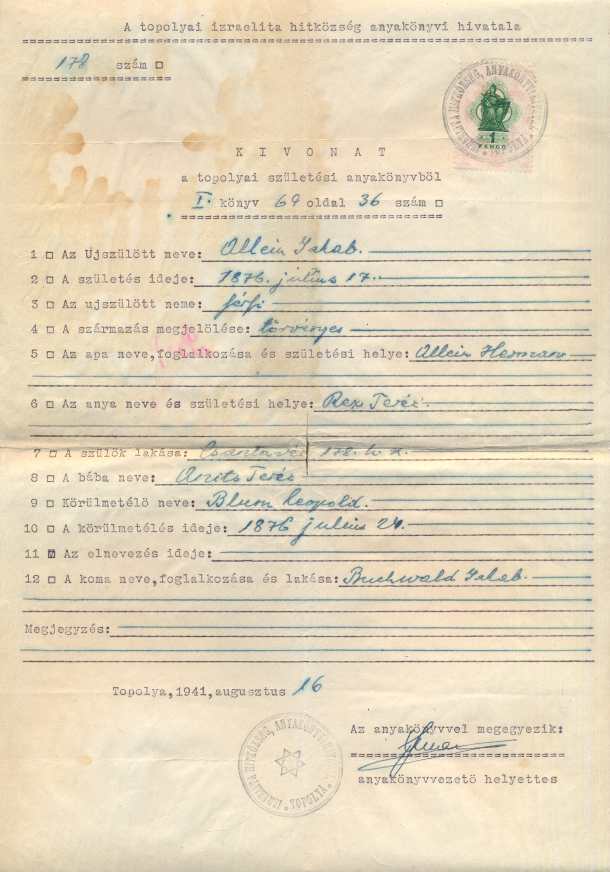 A topolyai izraelita hitközség anyakönyvi hivatala
178 szám
IZRAELITA HITKÖZSÉG, ANYAKÖNYVI
1
PENGŐ
KIVONAT
a topolyai születési anyakönyvből
I. könyv 69 oldal 36 szám
1 Az Ujszülött neve: Allein Jakab.
2 A születés ideje: 1876. julius 17.
3 Az ujszülött neme: férfi
4 A származás megjelölése: törvényes
5 Az apa neve, foglalkozása és születési helye: Allein Herman
6 Az anya neve és születési helye: Rex Teréz.
7 A szülök lakása: Csantavér 178. h. sz.
8 A bába neve: Teréz
9 Körülmetélö neve: Blum Leopold.
10 A körülmetélés ideje: 1876 julius 24.
11 Az elnevezés ideje:
12 A koma neve, foglalkozása és lakása: Buchwald Jakab.
Megjegyzés:
Topolya, 1941, augusztus 16
IZRAELITA HITKÖZSÉG, ANYAKÖNYVI TOPOLYA
Az anyakönyvvel megegyezik:
anyakönyvvezetö helyettes